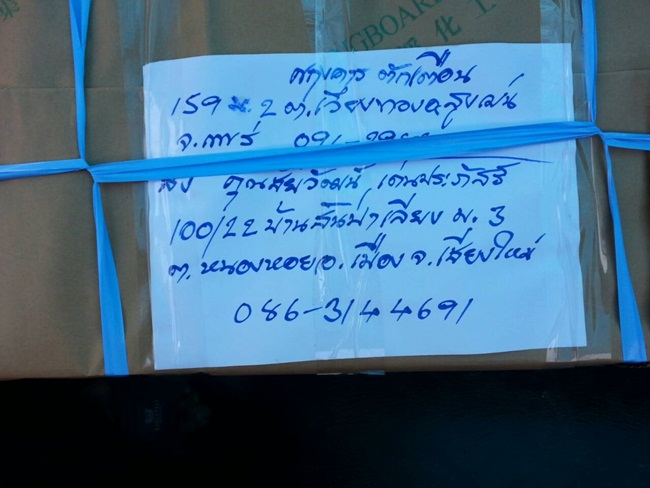 NGBOARD
159 ม.2 ต.เวียงทอง อ.สูงเม่น
จ.แพร่ 091-
ส่ง คุณชัยวัฒน์ เด่นประภัสร์
100/22 บ้านสันป่าเลียง ม.3
ต.หนองหอย อ.เมือง จ.เชียงใหม่
086-3144691